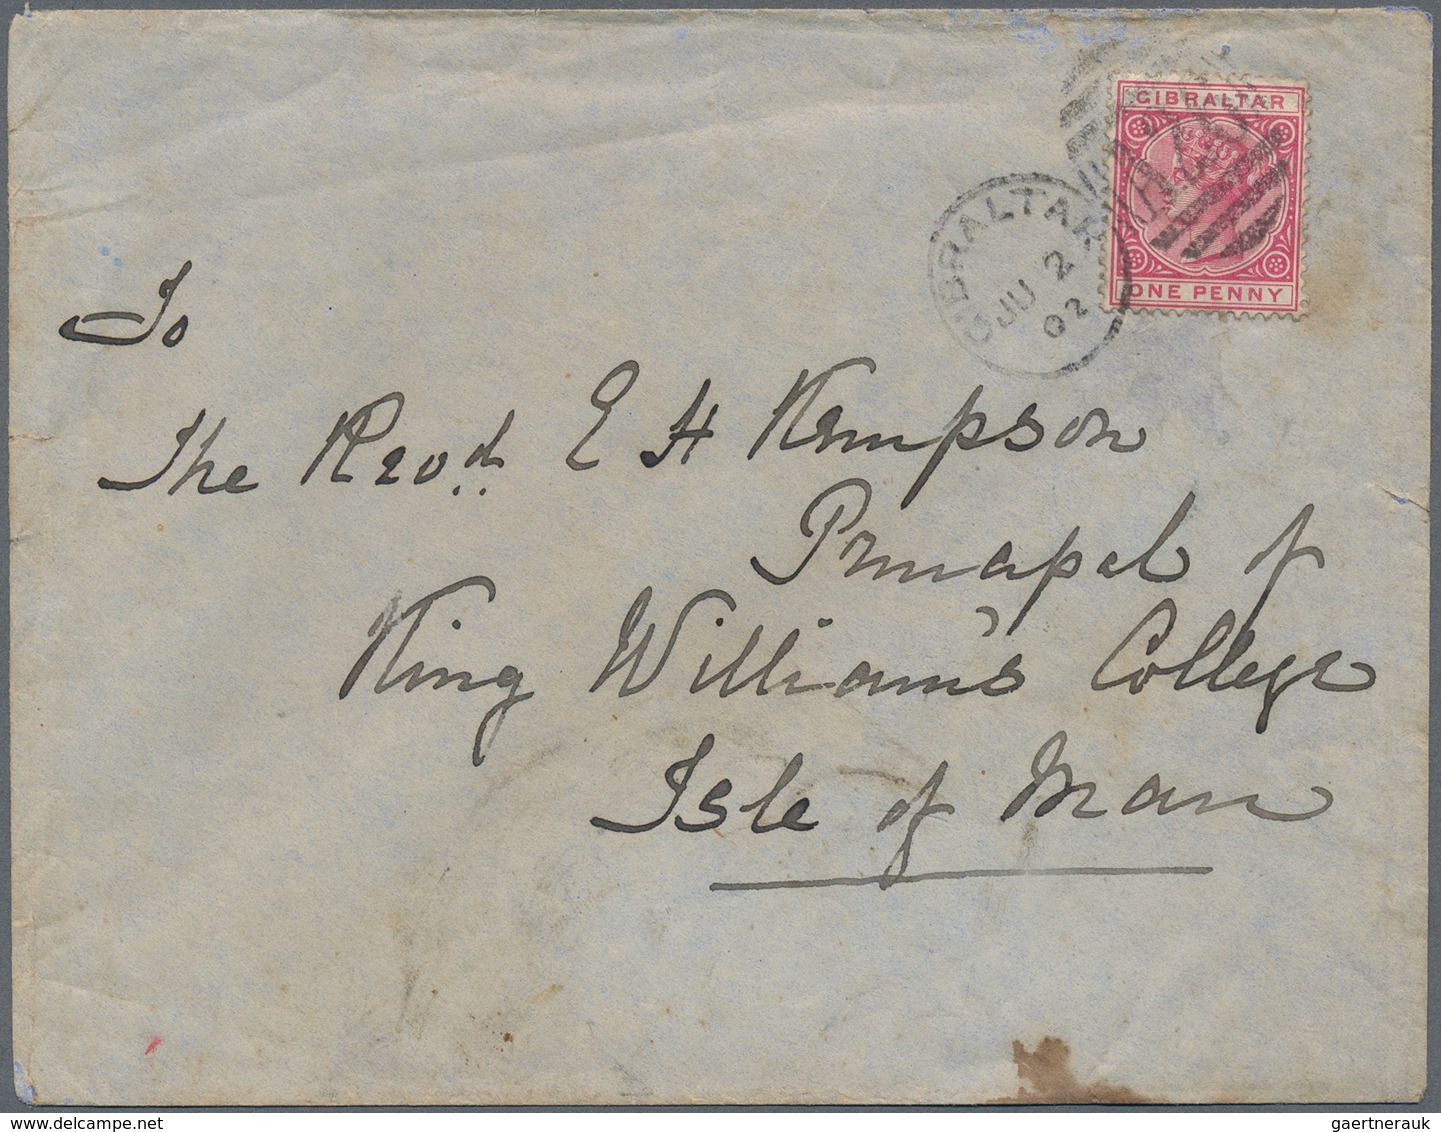 GIBRALTAR
ONE PENNY
GIBRALTAR
JU 2
02
To
The Revd. E H Kempson
Principal of
King William's College
Isle of Man
gaertnerauk